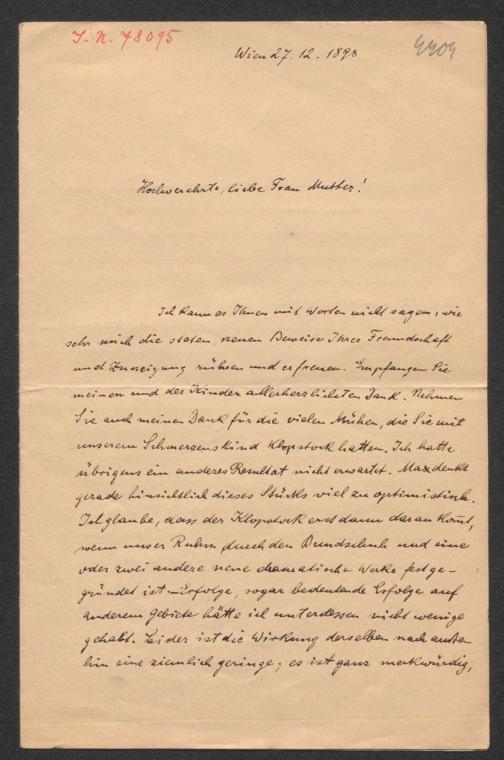 I.N. 78095
Wien 27. 12. 1898
Hochverehrte, liebe Frau Mutter!
Ich kann es Ihnen mit Worten nicht sagen, wie
sehr mich die steten, neuen Beweise Ihrer Freundschaft
und Zuneigung rühren und erfreuen. Empfangen Sie
meinen und der Kinder allerherzlichsten Dank. Nehmen
Sie auch meinen Dank für die vielen Mühen, die Sie mit
unserem Schmerzenskind Klopstock hatten. Ich hatte
übrigens ein anderes Resultat nicht erwartet. Max denkt
gerade hinsichtlich dieses Stücks viel zu optimistisch.
Ich glaube, dass der Klopstock erst dann daran kommt,
wenn unser Ruhm durch den Bundschuh und eine
oder zwei andere neue dramatische Werke festge-
gründet ist. – Erfolge, sogar bedeutende Erfolge auf
anderem Gebiete hätte ich unterdessen nicht wenige
gehabt. Leider ist die Wirkung derselben nach außen
hin eine ziemlich geringe; es ist ganz merkwürdig,